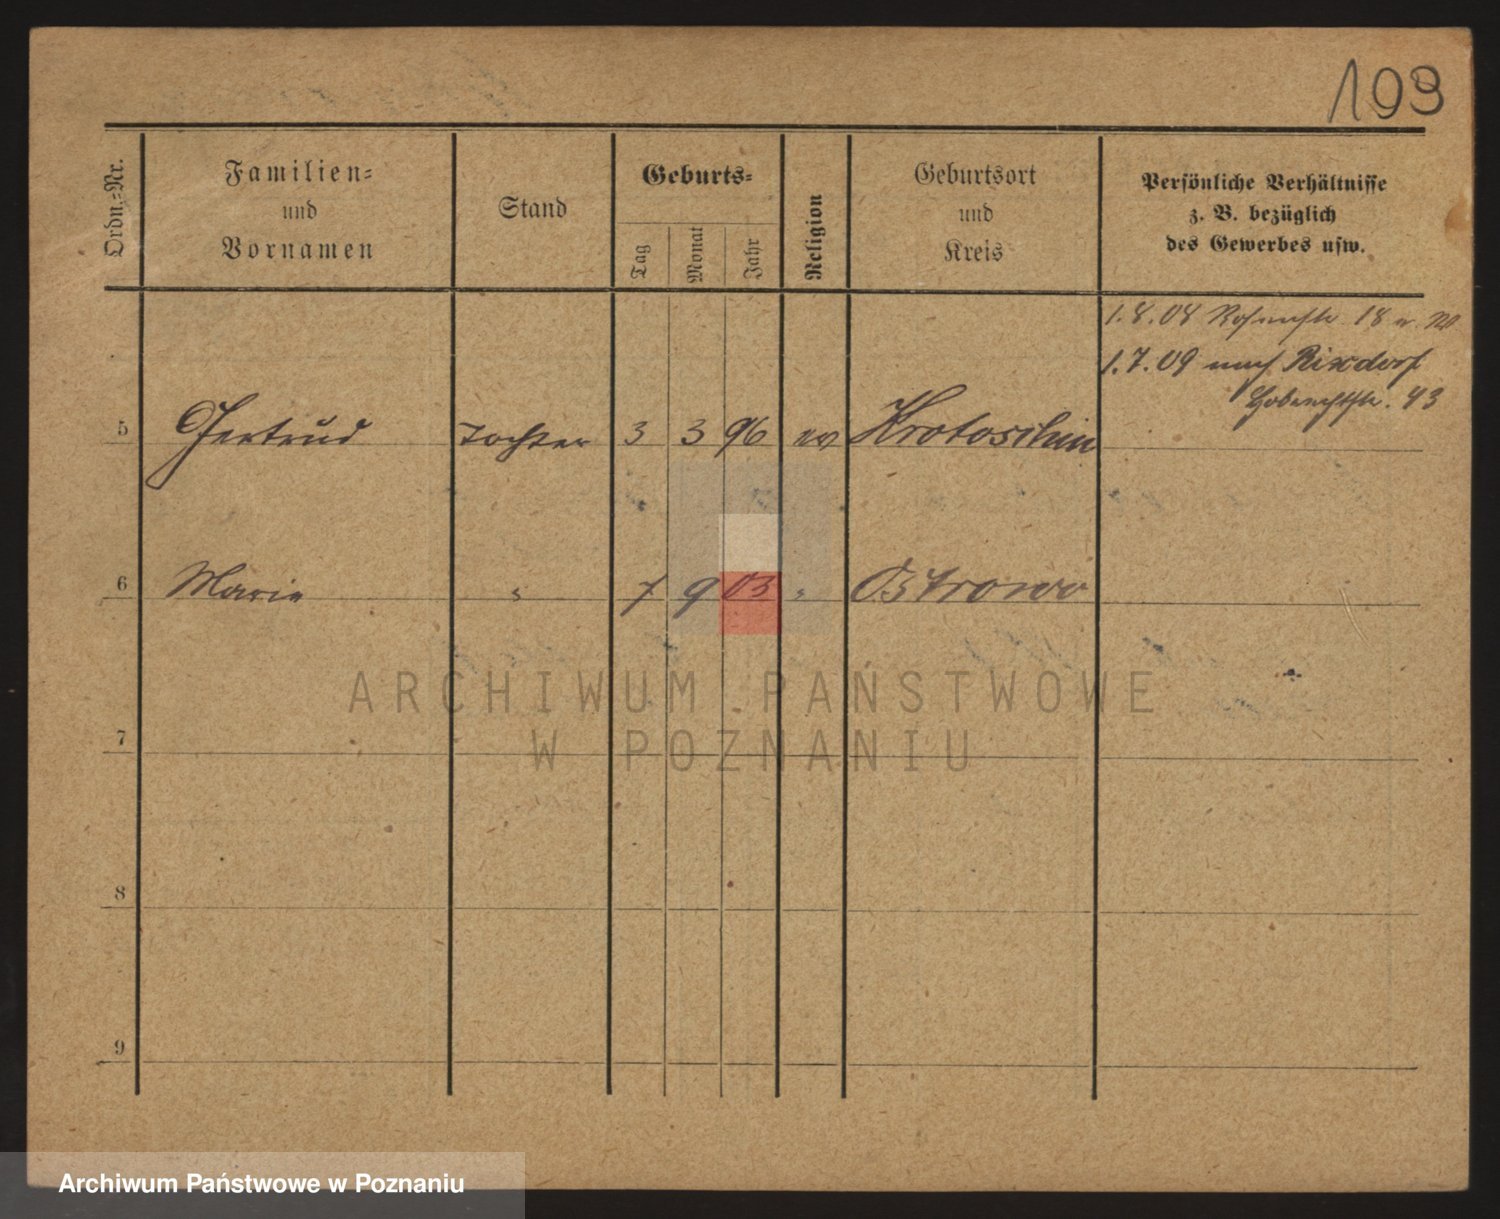 103
Ordn.-Nr.
Familien-
und
Vornamen
Stand
Geburts-
Tag
Monat
Jahr
Religion
Geburtsort
und
Kreis
Persönliche Verhältnisse
z. B. bezüglich
des Gewerbes usw.
1.8.08 18
1.7.09 nach Rixdorf
Hobrechtstr. 43
5 Gertrud Tochter 3 3 96 ev Krotoschin
6 Marie " 7 9 03 " Ostrowo
ARCHIWUM PAŃSTWOWE
W POZNANIU
7
8
9
Archiwum Państwowe w Poznaniu